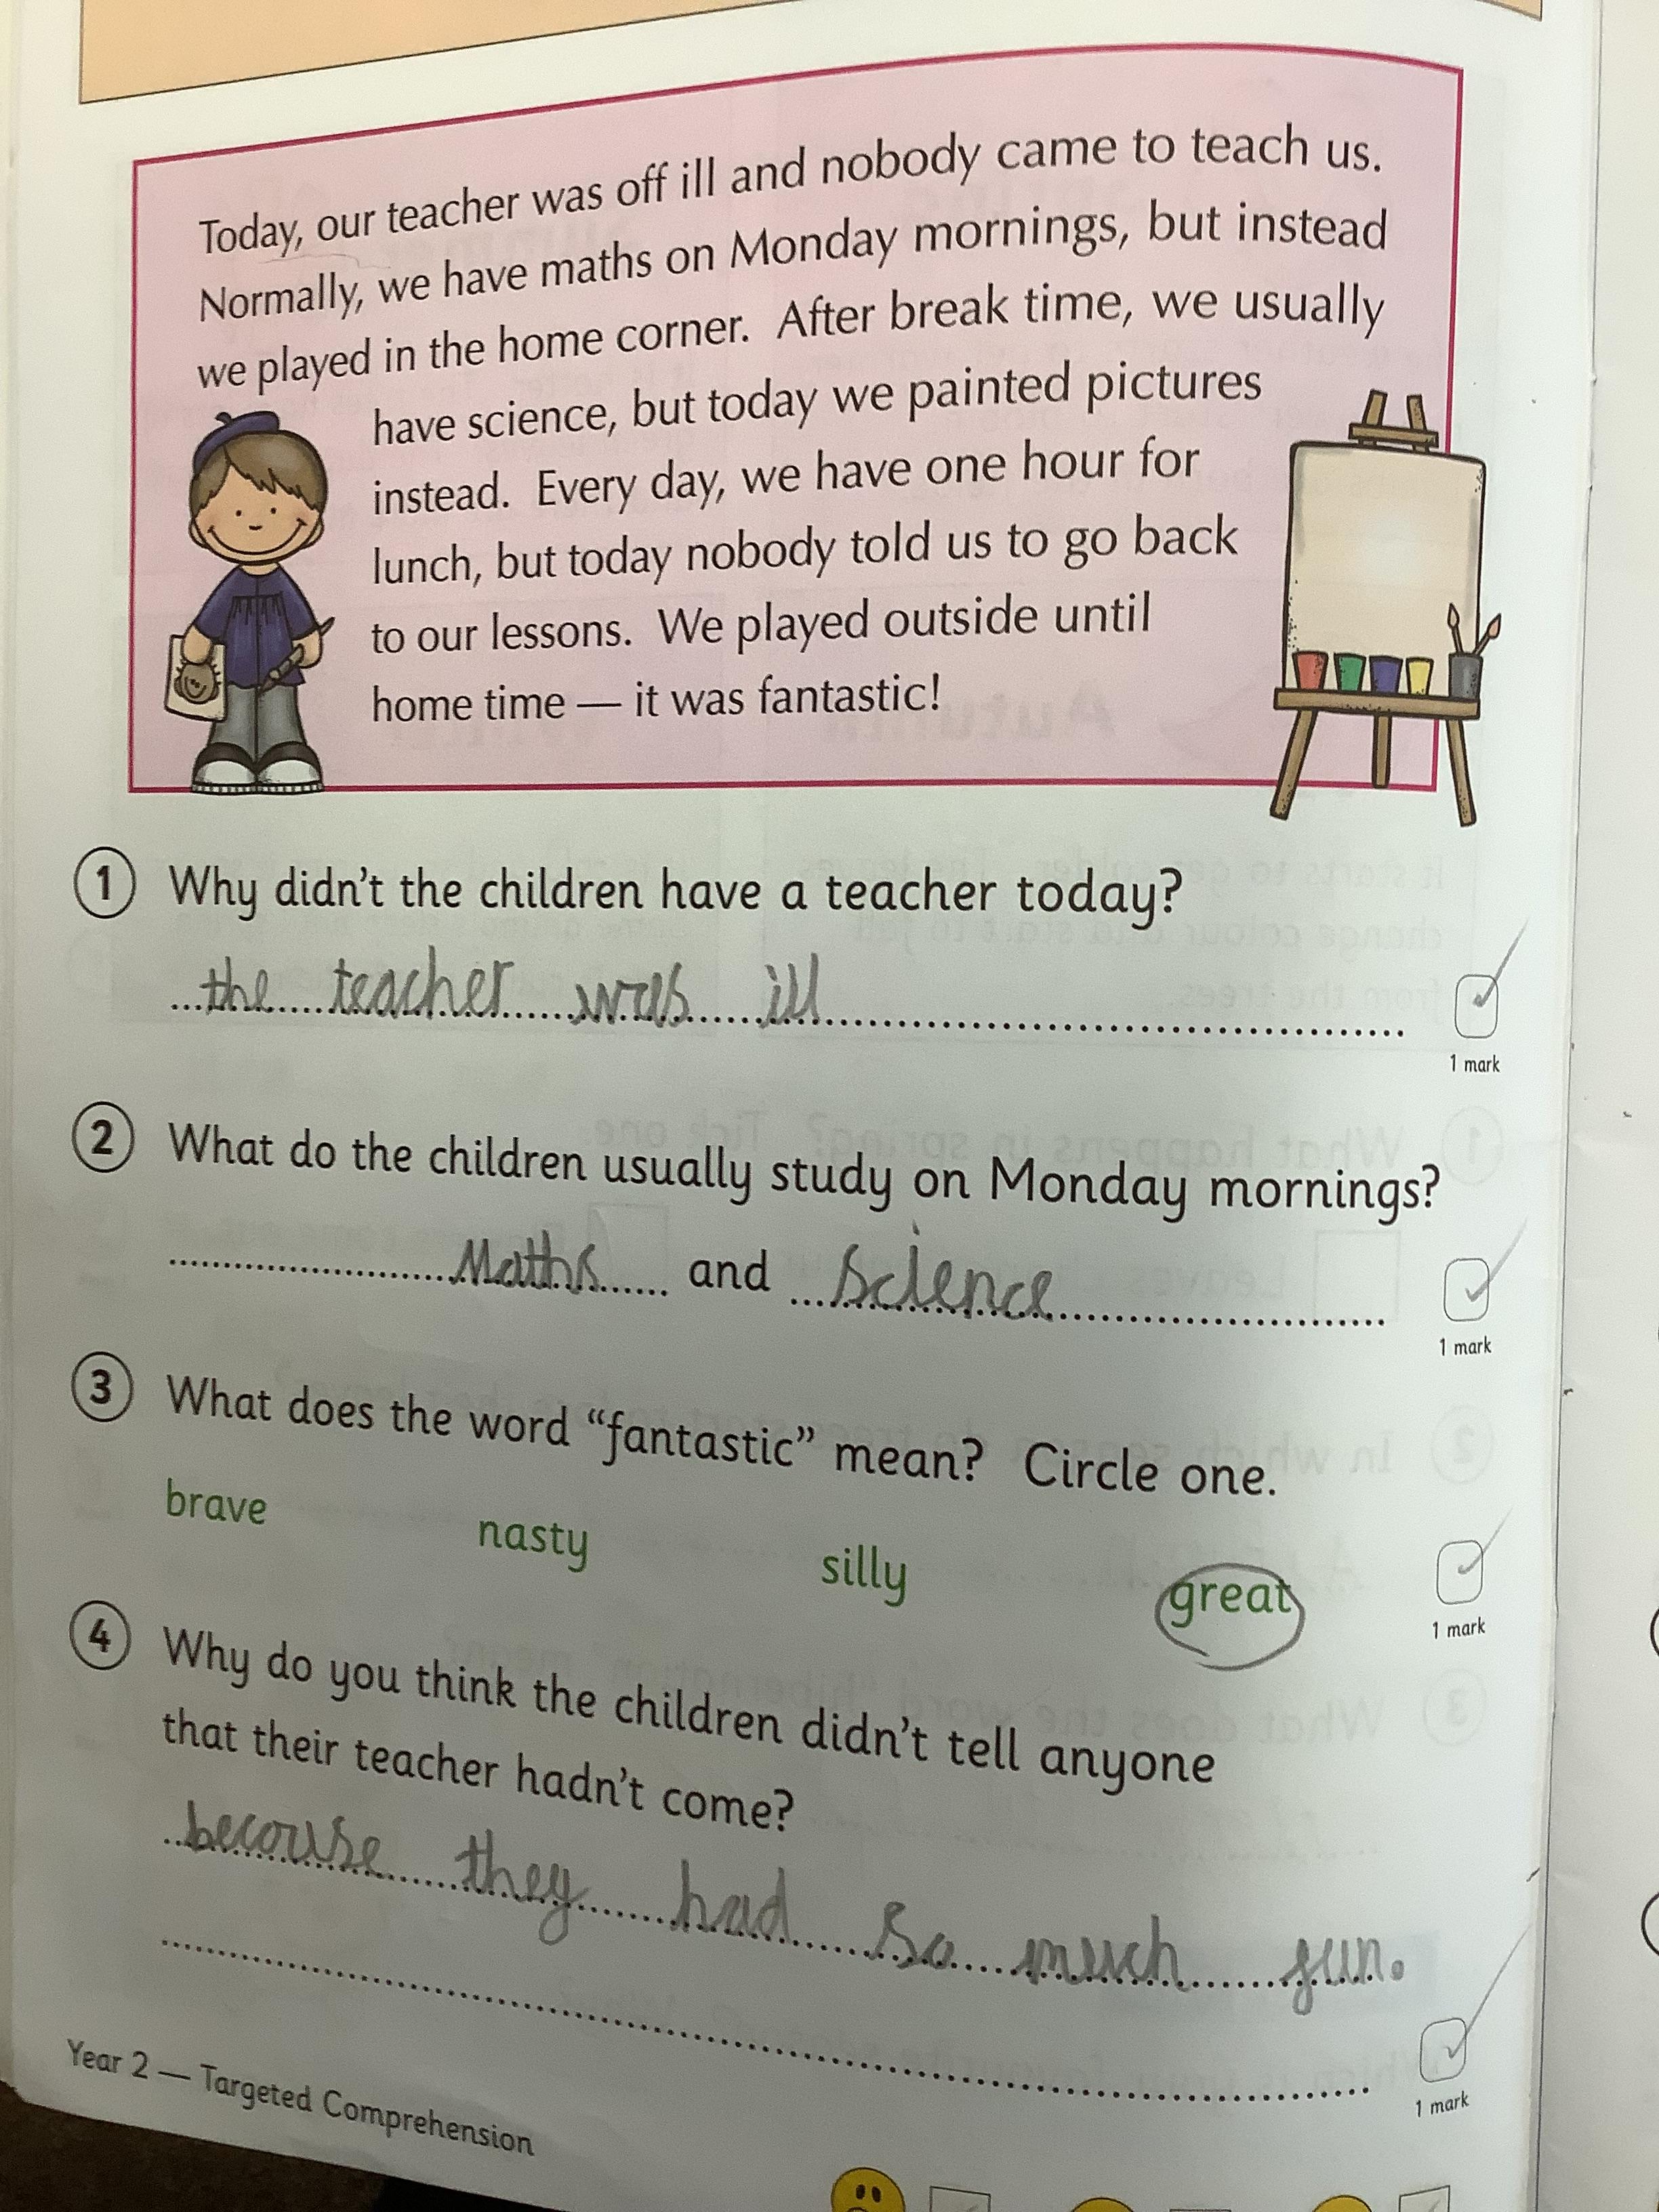 Today, our teacher was off ill and nobody came to teach us.
Normally, we have maths on Monday mornings, but instead
we played in the home corner. After break time, we usually
have science, but today we painted pictures
instead. Every day, we have one hour for
lunch, but today nobody told us to go back
to our lessons. We played outside until
home time — it was fantastic!
1 Why didn't the children have a teacher today?
the teacher was ill
1 mark
2 What do the children usually study on Monday mornings?
Maths and Science
1 mark
3 What does the word “fantastic” mean? Circle one.
brave nasty silly great
1 mark
4 Why do you think the children didn't tell anyone
that their teacher hadn't come?
becouse they had so much fun.
1 mark
Year 2 — Targeted Comprehension